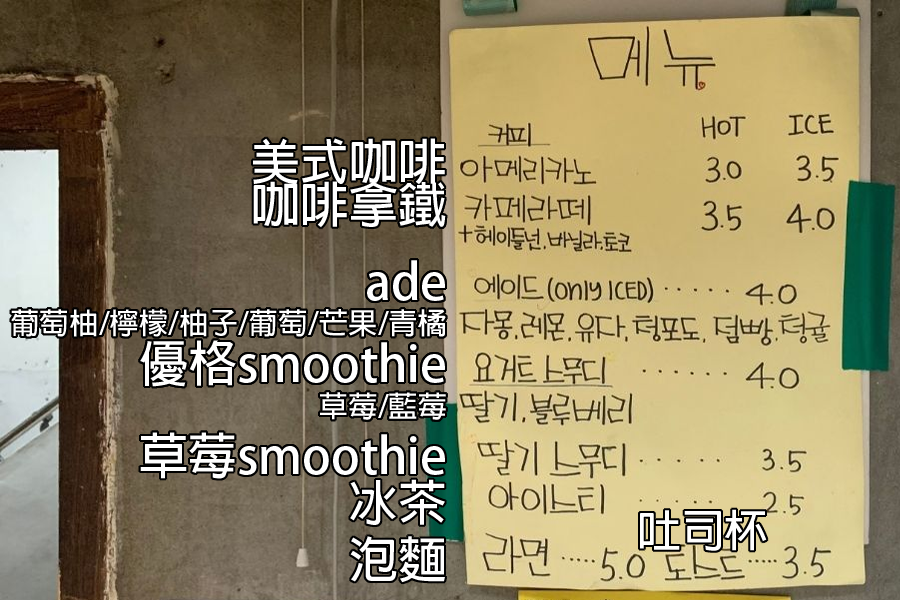 메뉴
커피 HOT ICE
美式咖啡 아메리카노 3.0 3.5
咖啡拿鐵 카페라떼 3.5 4.0
+헤이들넛.바닐라.토코
ade 에이드 (only ICED) ······ 4.0
葡萄柚/檸檬/柚子/葡萄/芒果/青橘 자몽.레몬.유자.청포도.
優格smoothie 요거트 스무디 ······ 4.0
草莓/藍莓 딸기.블루베리
草莓smoothie 딸기 스무디 ····· 3.5
冰茶 아이스티 ····· 2.5
吐司杯
泡麵 라면 ·····5.0 토스트 ·····3.5